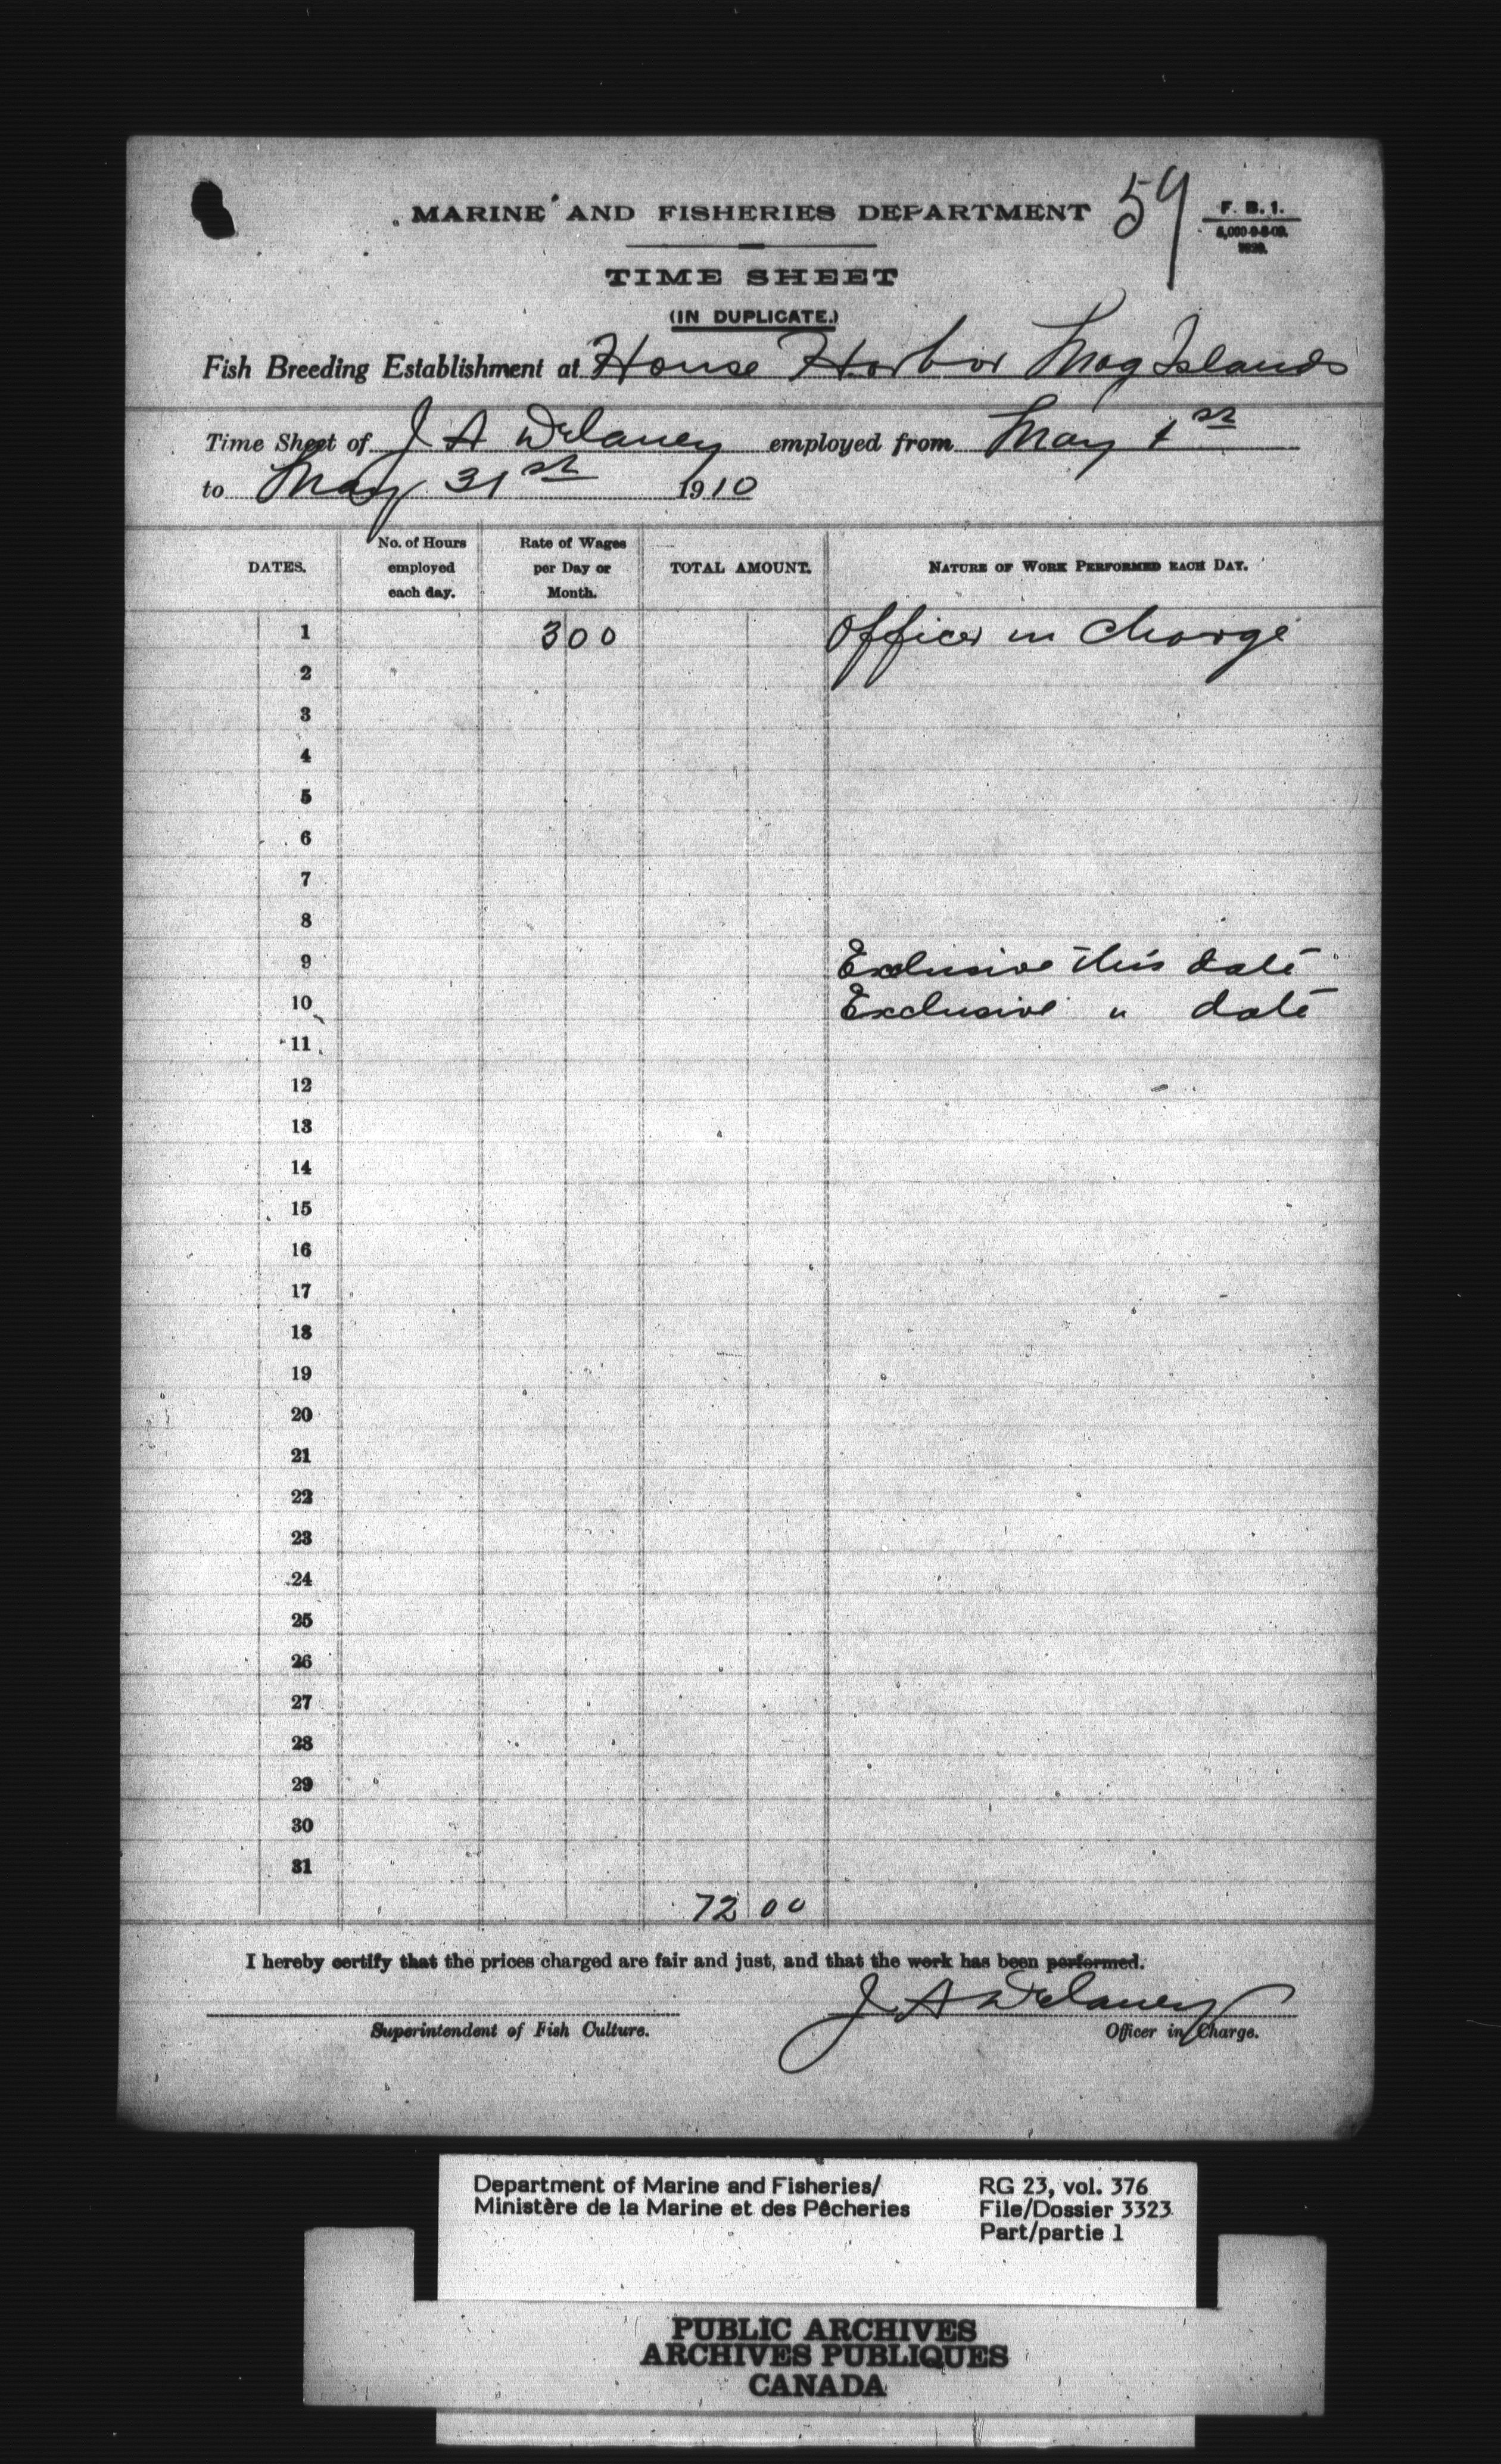 MARINE AND FISHERIES DEPARTMENT 59 F. B. 1.
TIME SHEET
(IN DUPLICATE.)
Fish Breeding Establishment at House Harbor Mag Islands
Time Sheet of J A Delaney employed from May 1st
to May 31st 1910
DATES. No. of Hours employed each day. Rate of Wages per Day or Month. TOTAL AMOUNT. NATURE OF WORK PERFORMED EACH DAY.
1 3 00 Officer in Charge
2
3
4
5
6
7
8
9 Exclusive this date
10 Exclusive " date
11
12
13
14
15
16
17
18
19
20
21
22
23
24
25
26
27
28
29
30
31
72 00
I hereby certify that the prices charged are fair and just, and that the work has been performed.
J A Delaney
Superintendent of Fish Culture. Officer in Charge.
Department of Marine and Fisheries/ RG 23, vol. 376
Ministère de la Marine et des Pêcheries File/Dossier 3323
Part/partie 1
PUBLIC ARCHIVES
ARCHIVES PUBLIQUES
CANADA